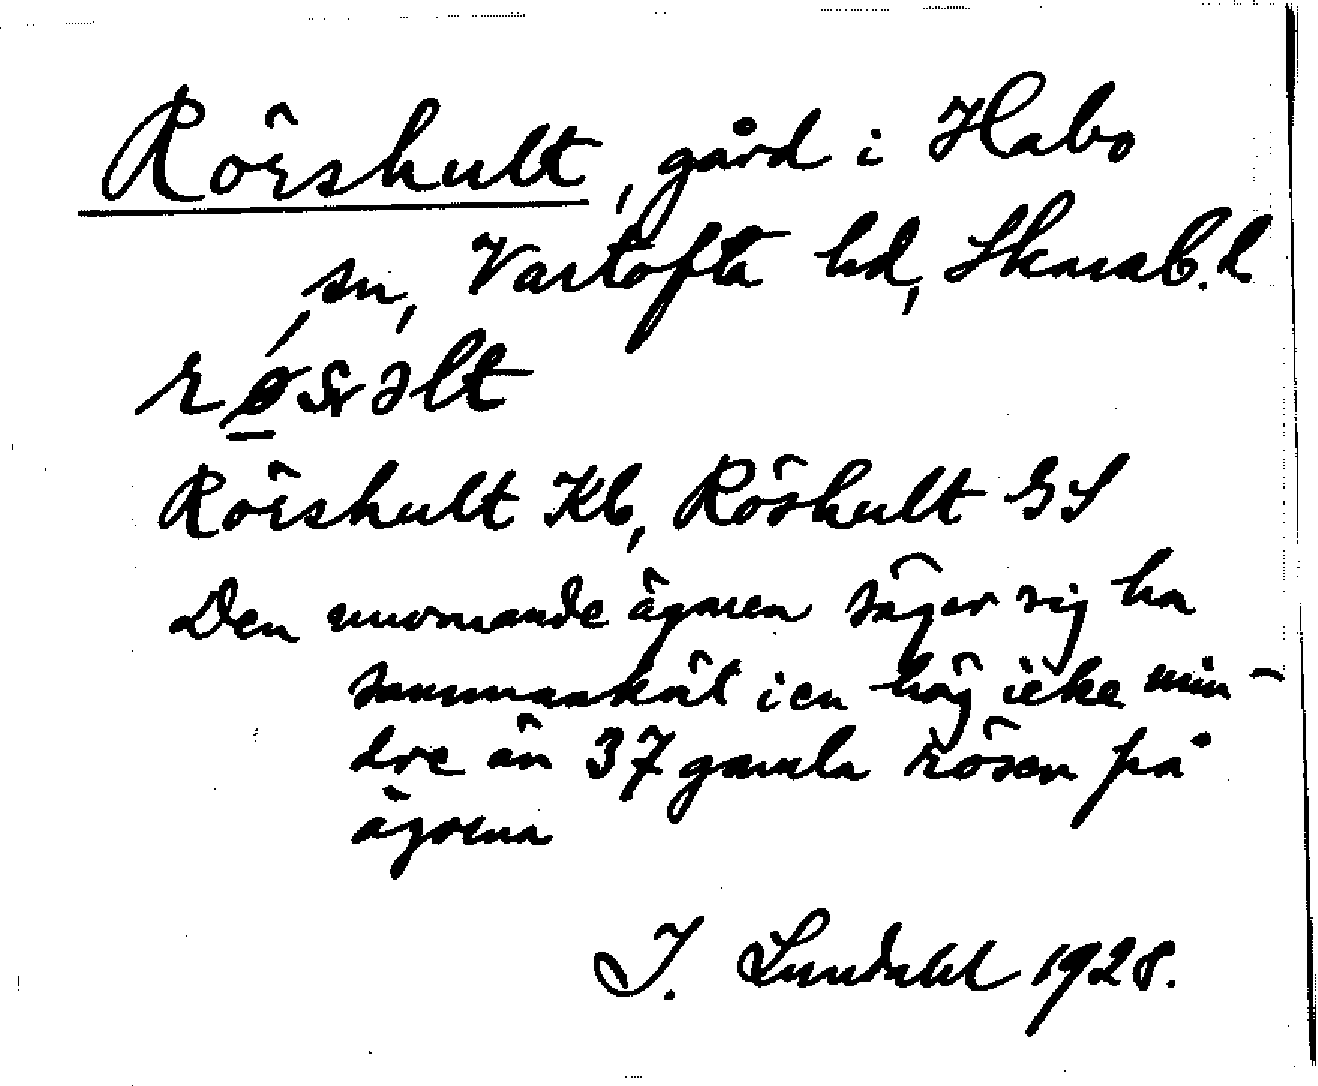 Rörshult, gård i Habo
sn, Vartofta hd, Skarab.l
Rörshult Kb, Röshult GS
Den nuvarande ägaren säger sig ha
sammankört i en hög icke min-
dre än 37 gamla rösen på
ägorna
I. Lundahl 1928.